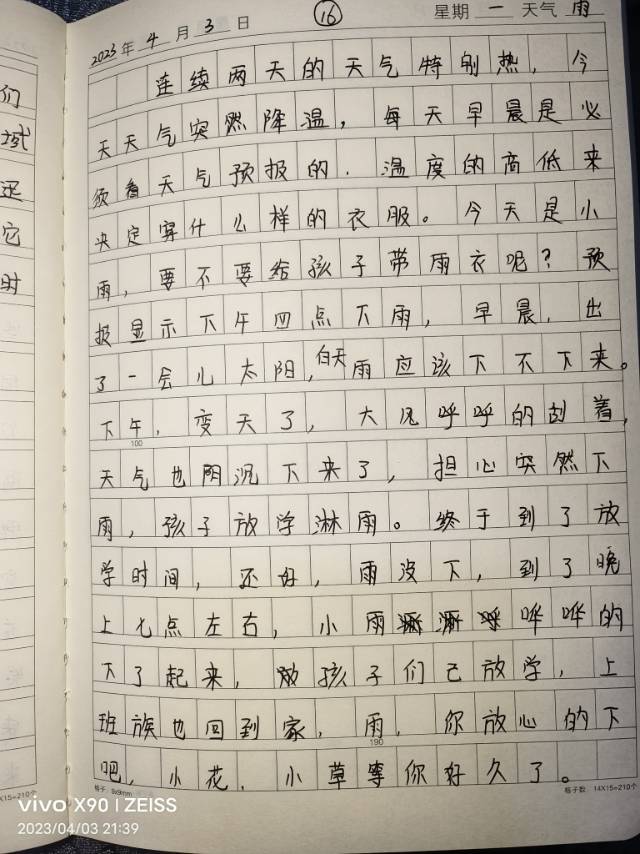 2023年4月3日 16 星期一 天气雨
连续两天的天气特别热，今
天天气突然降温，每天早晨是必
须看天气预报的.温度的高低来
决定穿什么样的衣服。今天是小
雨，要不要给孩子带雨衣呢？预
报显示下午四点下雨，早晨，出
了一会儿太阳，白天雨应该下不下来。
下午，变天了，大风呼呼的刮着，
天气也阴沉下来了，担心突然下
雨，孩子放学淋雨。终于到了放
学时间，还好，雨没下，到了晚
上七点左右，小雨哗哗的
下了起来，孩子们已放学，上
班族也回到家，雨，你放心的下
吧，小花，小草等你好久了。
100
190
们
域
还
它
时
X15=210个
格子：9x9mm
格子数：14X15=210个
vivo X90 | ZEISS
2023/04/03 21:39